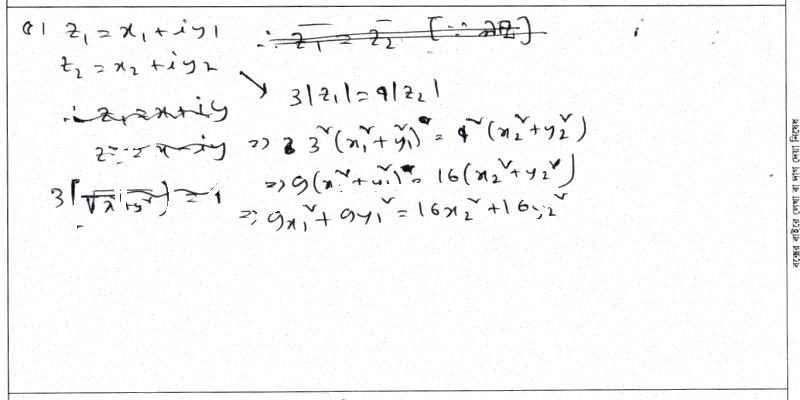 Q1 z₁ = x₁ + iy₁
z₂ = x₂ + iy₂
3|z₁| = 4|z₂|
=> 3²(x₁² + y₁²) = 4²(x₂² + y₂²)
=> 9(x₁² + y₁²) = 16(x₂² + y₂²)
=> 9x₁² + 9y₁² = 16x₂² + 16y₂²
বক্সের বাইরে লেখা বা দাগ দেয়া নিষেধ